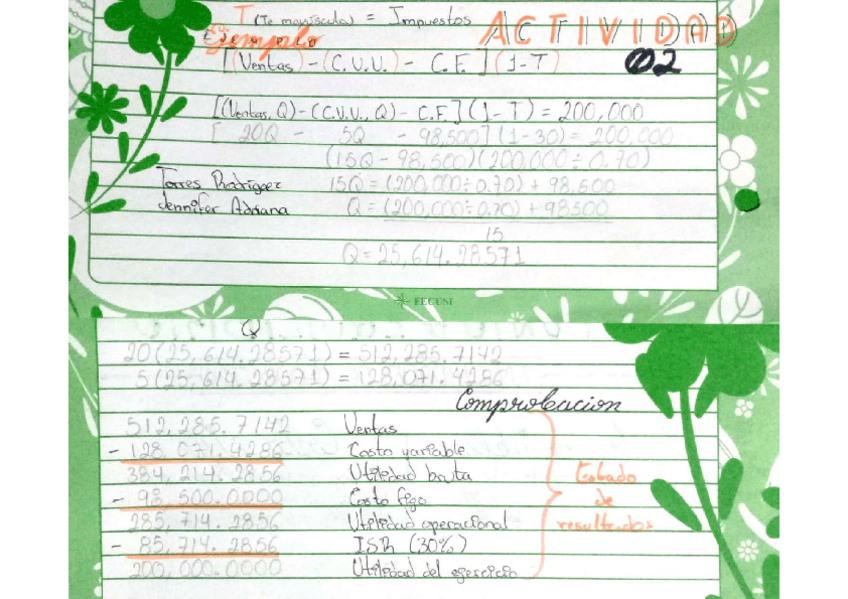 T (Te mayúscula) = Impuestos
ACTIVIDAD
Ejemplo
02
[(Ventas) - (C.V.U.) - C.F.] (1-T)
[(Ventas, Q) - (C.V.U., Q) - C.F.] (1-T) = 200,000
[ 20Q - 5Q - 98,500] (1-30) = 200,000
(15Q - 98,500) (200,000 ÷ 0.70)
Torres Rodríguez
15Q = (200,000 ÷ 0.70) + 98,500
Jennifer Adriana
Q = (200,000 ÷ 0.70) + 98500
15
Q = 25,614.28571
FECUSI
Q
20 (25,614.28571) = 512,285.7142
5 (25,614.28571) = 128,071.4286
Comprobacion
512,285.7142 Ventas
- 128,071.4286 Costo variable
384,214.2856 Utilidad bruta
- 98,500.0000 Costo figo
285,714.2856 Utilidad operacional
- 85,714.2856 ISR (30%)
200,000.0000 Utilidad del egercicio
Estado
de
resultrados